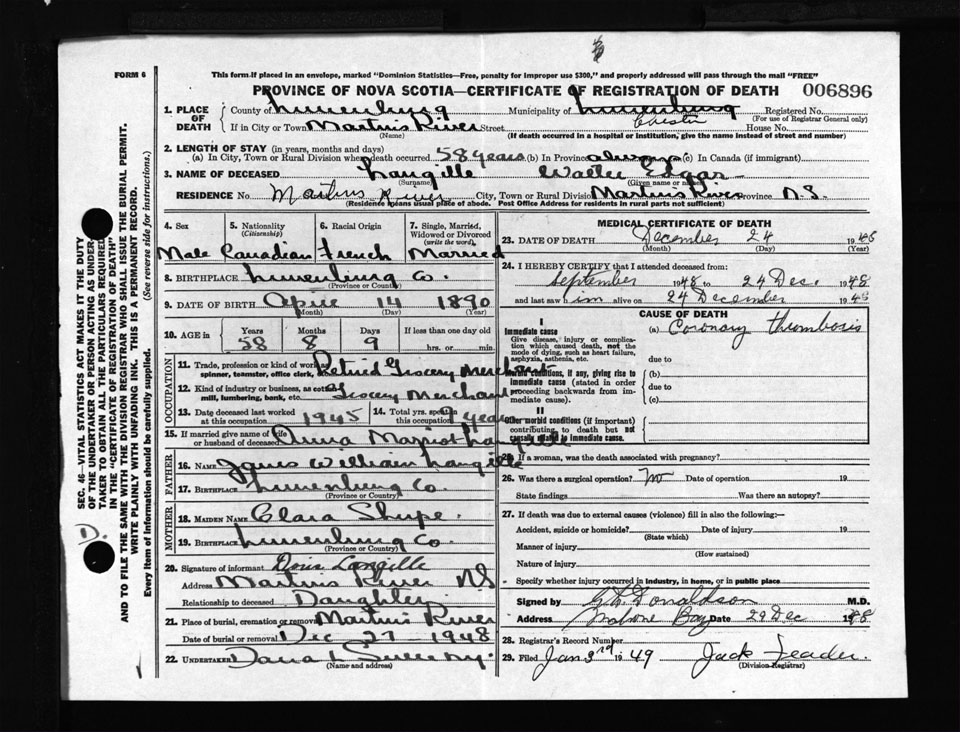 FORM 6
This form if placed in an envelope, marked "Dominion Statistics—Free, penalty for improper use $300," and properly addressed will pass through the mail "FREE"
PROVINCE OF NOVA SCOTIA—CERTIFICATE OF REGISTRATION OF DEATH 006896
1. PLACE OF DEATH County of Lunenburg Municipality of Lunenburg Chester Registered No.
(For use of Registrar General only)
If in City or Town Martins River Street House No.
(Name) (If death occurred in a hospital or institution, give the name instead of street and number)
2. LENGTH OF STAY (in years, months and days)
(a) In City, Town or Rural Division where death occurred 58 years (b) In Province always (c) In Canada (if immigrant)
3. NAME OF DECEASED Langille Walter Edgar
(Surname) (Given name or names)
RESIDENCE No Martins River City, Town or Rural Division Martins River Province N.S.
(Residence means usual place of abode. Post Office Address for residents in rural parts not sufficient)
4. Sex 5. Nationality (Citizenship) 6. Racial Origin 7. Single, Married, Widowed or Divorced (write the word)
Male Canadian French Married
8. BIRTHPLACE Lunenburg Co.
(Province or County)
9. DATE OF BIRTH April 14 1890
(Month) (Day) (Year)
10. AGE in Years Months Days If less than one day old
58 8 9 hrs. or min.
OCCUPATION
11. Trade, profession or kind of work as spinner, teamster, office clerk, Retired Grocery Merchant
12. Kind of industry or business, as cotton mill, lumbering, bank, etc. Grocery Merchant
13. Date deceased last worked at this occupation 1945 14. Total yrs. spent in this occupation years
15. If married give name of wife or husband of deceased Anna Langille
FATHER
16. NAME William Langille
17. BIRTHPLACE Lunenburg Co.
(Province or Country)
MOTHER
18. MAIDEN NAME Clara Shupe.
19. BIRTHPLACE Lunenburg Co
(Province or Country)
20. Signature of informant Doris Langille
Address Martins River NS
Relationship to deceased Daughter
21. Place of burial, cremation or removal Martins River
Date of burial or removal Dec 27 1948
22. UNDERTAKER Dana L Sweeny.
(Name and address)
MEDICAL CERTIFICATE OF DEATH
23. DATE OF DEATH December 24 1948
(Month) (Day) (Year)
24. I HEREBY CERTIFY that I attended deceased from:
September 1948 to 24 Dec. 1948
and last saw him alive on 24 December 1948
CAUSE OF DEATH
I
Immediate cause (a) Coronary thrombosis
Give disease, injury or complication which caused death, not the mode of dying, such as heart failure, asphyxia, asthenia, etc. due to
Morbid conditions, if any, giving rise to immediate cause (stated in order of proceeding backwards from immediate cause). (b)
due to
(c)
II
Other morbid conditions (if important) contributing to death but not causally related to immediate cause.
25. If a woman, was the death associated with pregnancy?
26. Was there a surgical operation? No Date of operation 19
State findings Was there an autopsy?
27. If death was due to external causes (violence) fill in also the following:—
Accident, suicide or homicide? Date of injury 19
(State which)
Manner of injury
(How sustained)
Nature of injury
Specify whether injury occurred in industry, in home, or in public place
Signed by Donaldson M.D.
Address Mahone Bay Date 29 Dec 1948
28. Registrar's Record Number
29. Filed Jan 3rd 1949 Jack Feader.
(Division Registrar)
SEC. 46—VITAL STATISTICS ACT MAKES IT THE DUTY
OF THE UNDERTAKER OR PERSON ACTING AS UNDER-
TAKER TO OBTAIN ALL THE PARTICULARS REQUIRED
IN THE "CERTIFICATE OF REGISTRATION OF DEATH"
AND TO FILE THE SAME WITH THE DIVISION REGISTRAR WHO SHALL ISSUE THE BURIAL PERMIT.
WRITE PLAINLY WITH UNFADING INK. THIS IS A PERMANENT RECORD.
Every item of information should be carefully supplied. (See reverse side for instructions.)